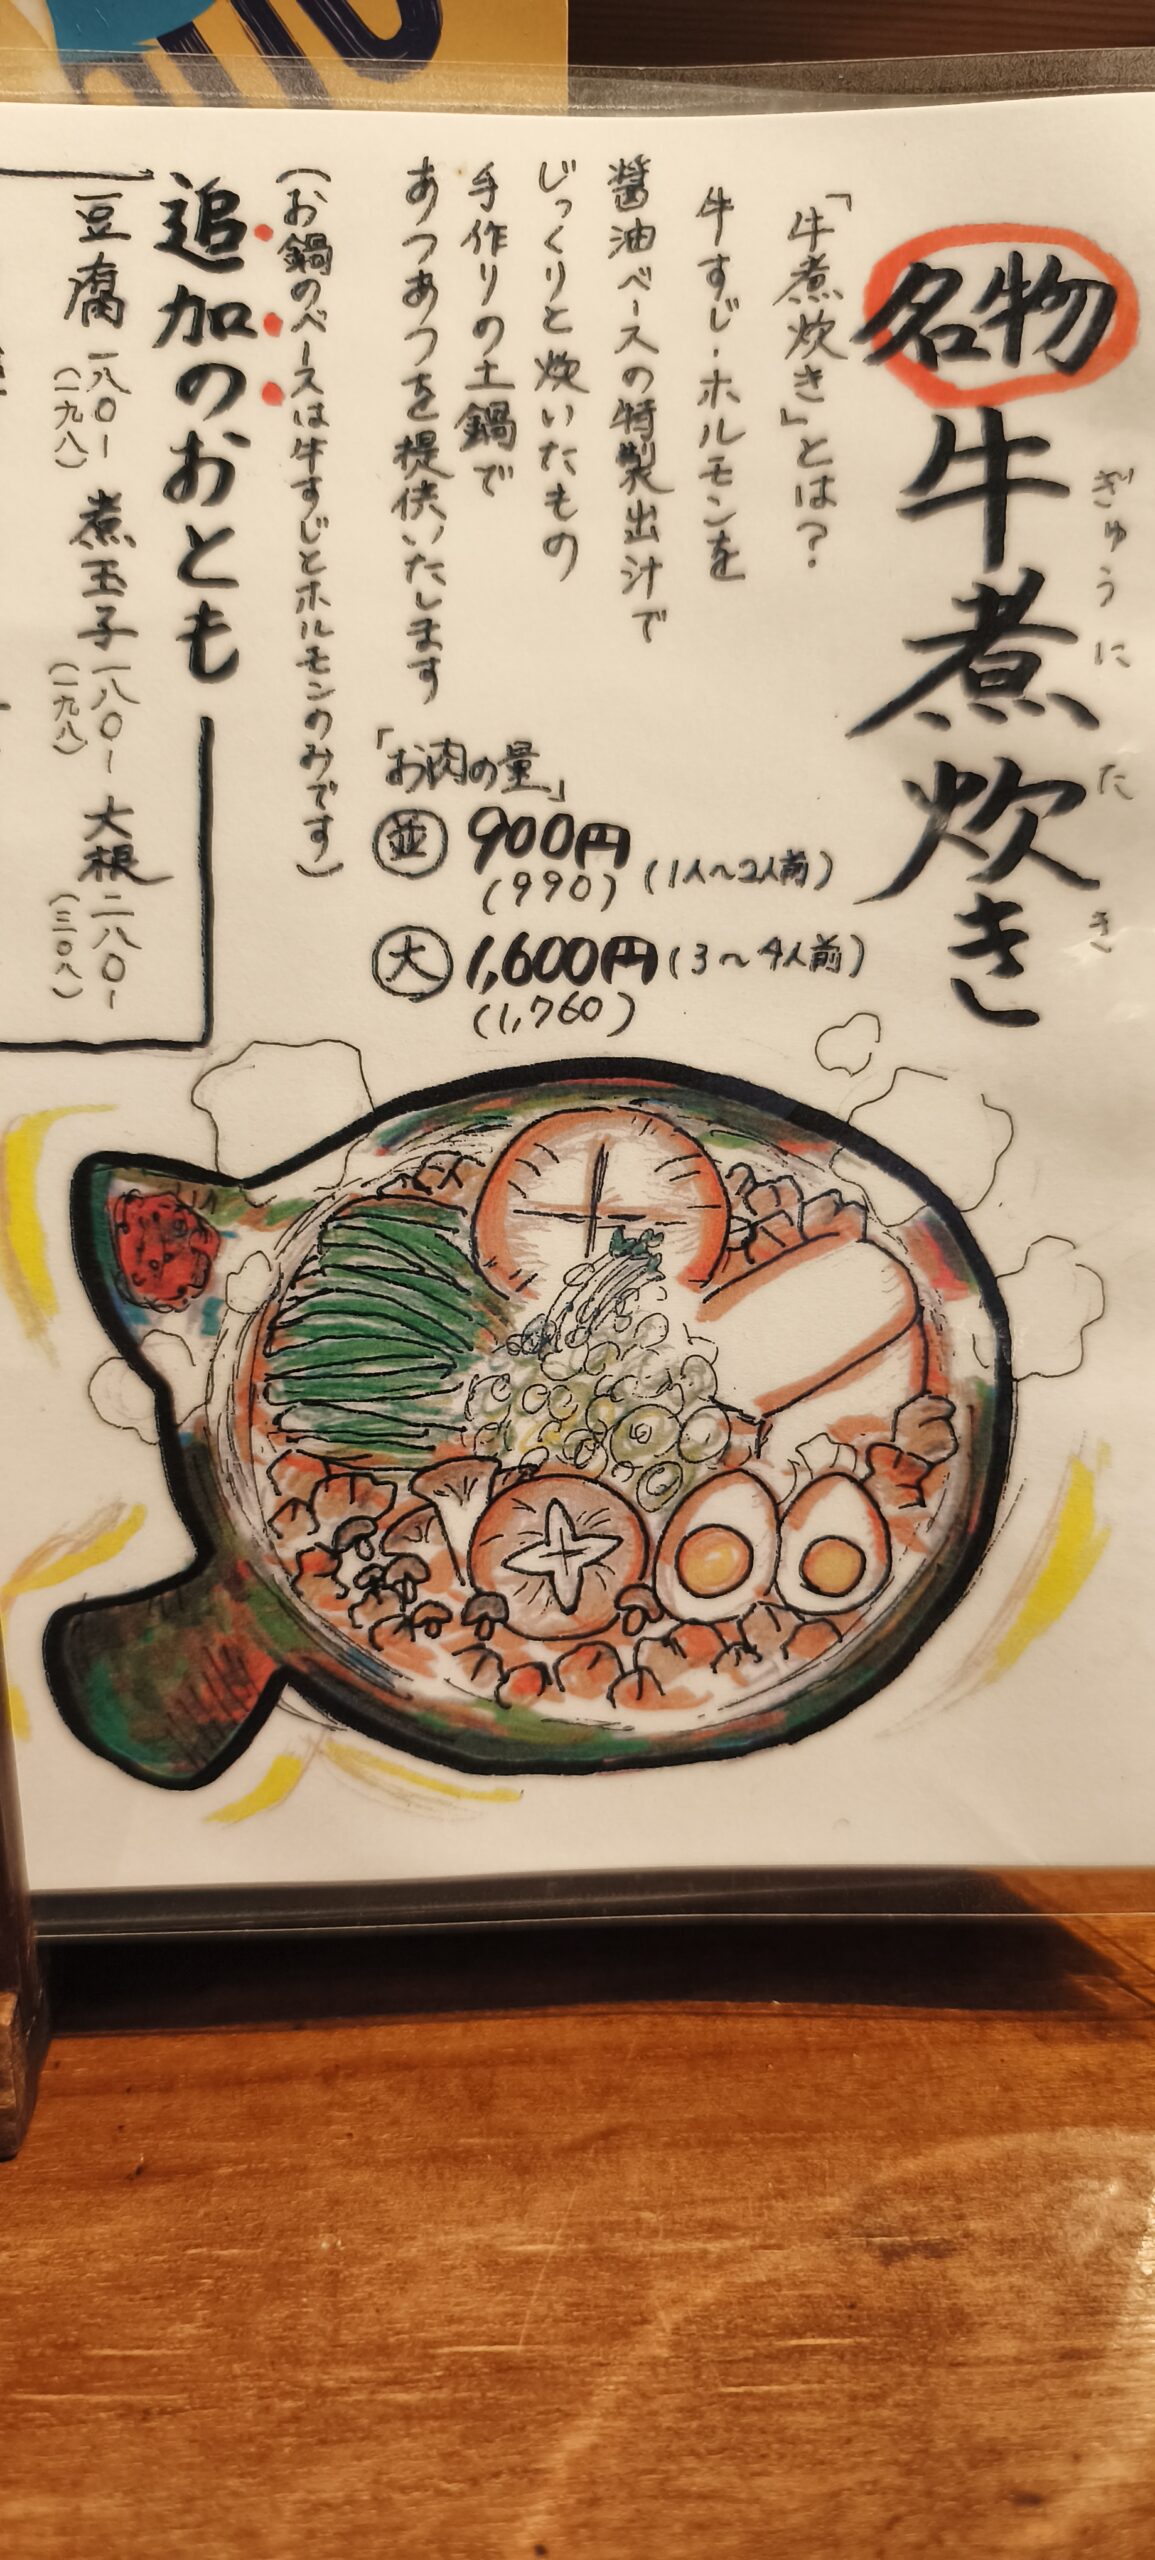 名物
牛煮炊き
ぎゅうにたき
「牛煮炊き」とは？
牛すじ・ホルモンを
醤油ベースの特製出汁で
じっくりと炊いたもの
手作りの土鍋で
あつあつを提供いたします
（お鍋のベースは牛すじとホルモンのみです）
「お肉の量」
並 900円 (1人〜2人前)
(990)
大 1,600円 (3〜4人前)
(1,760)
追加のおとも
豆腐 一八〇- 煮玉子 一八〇- 大根 二八〇-
(一九八) (一九八) (三〇八)